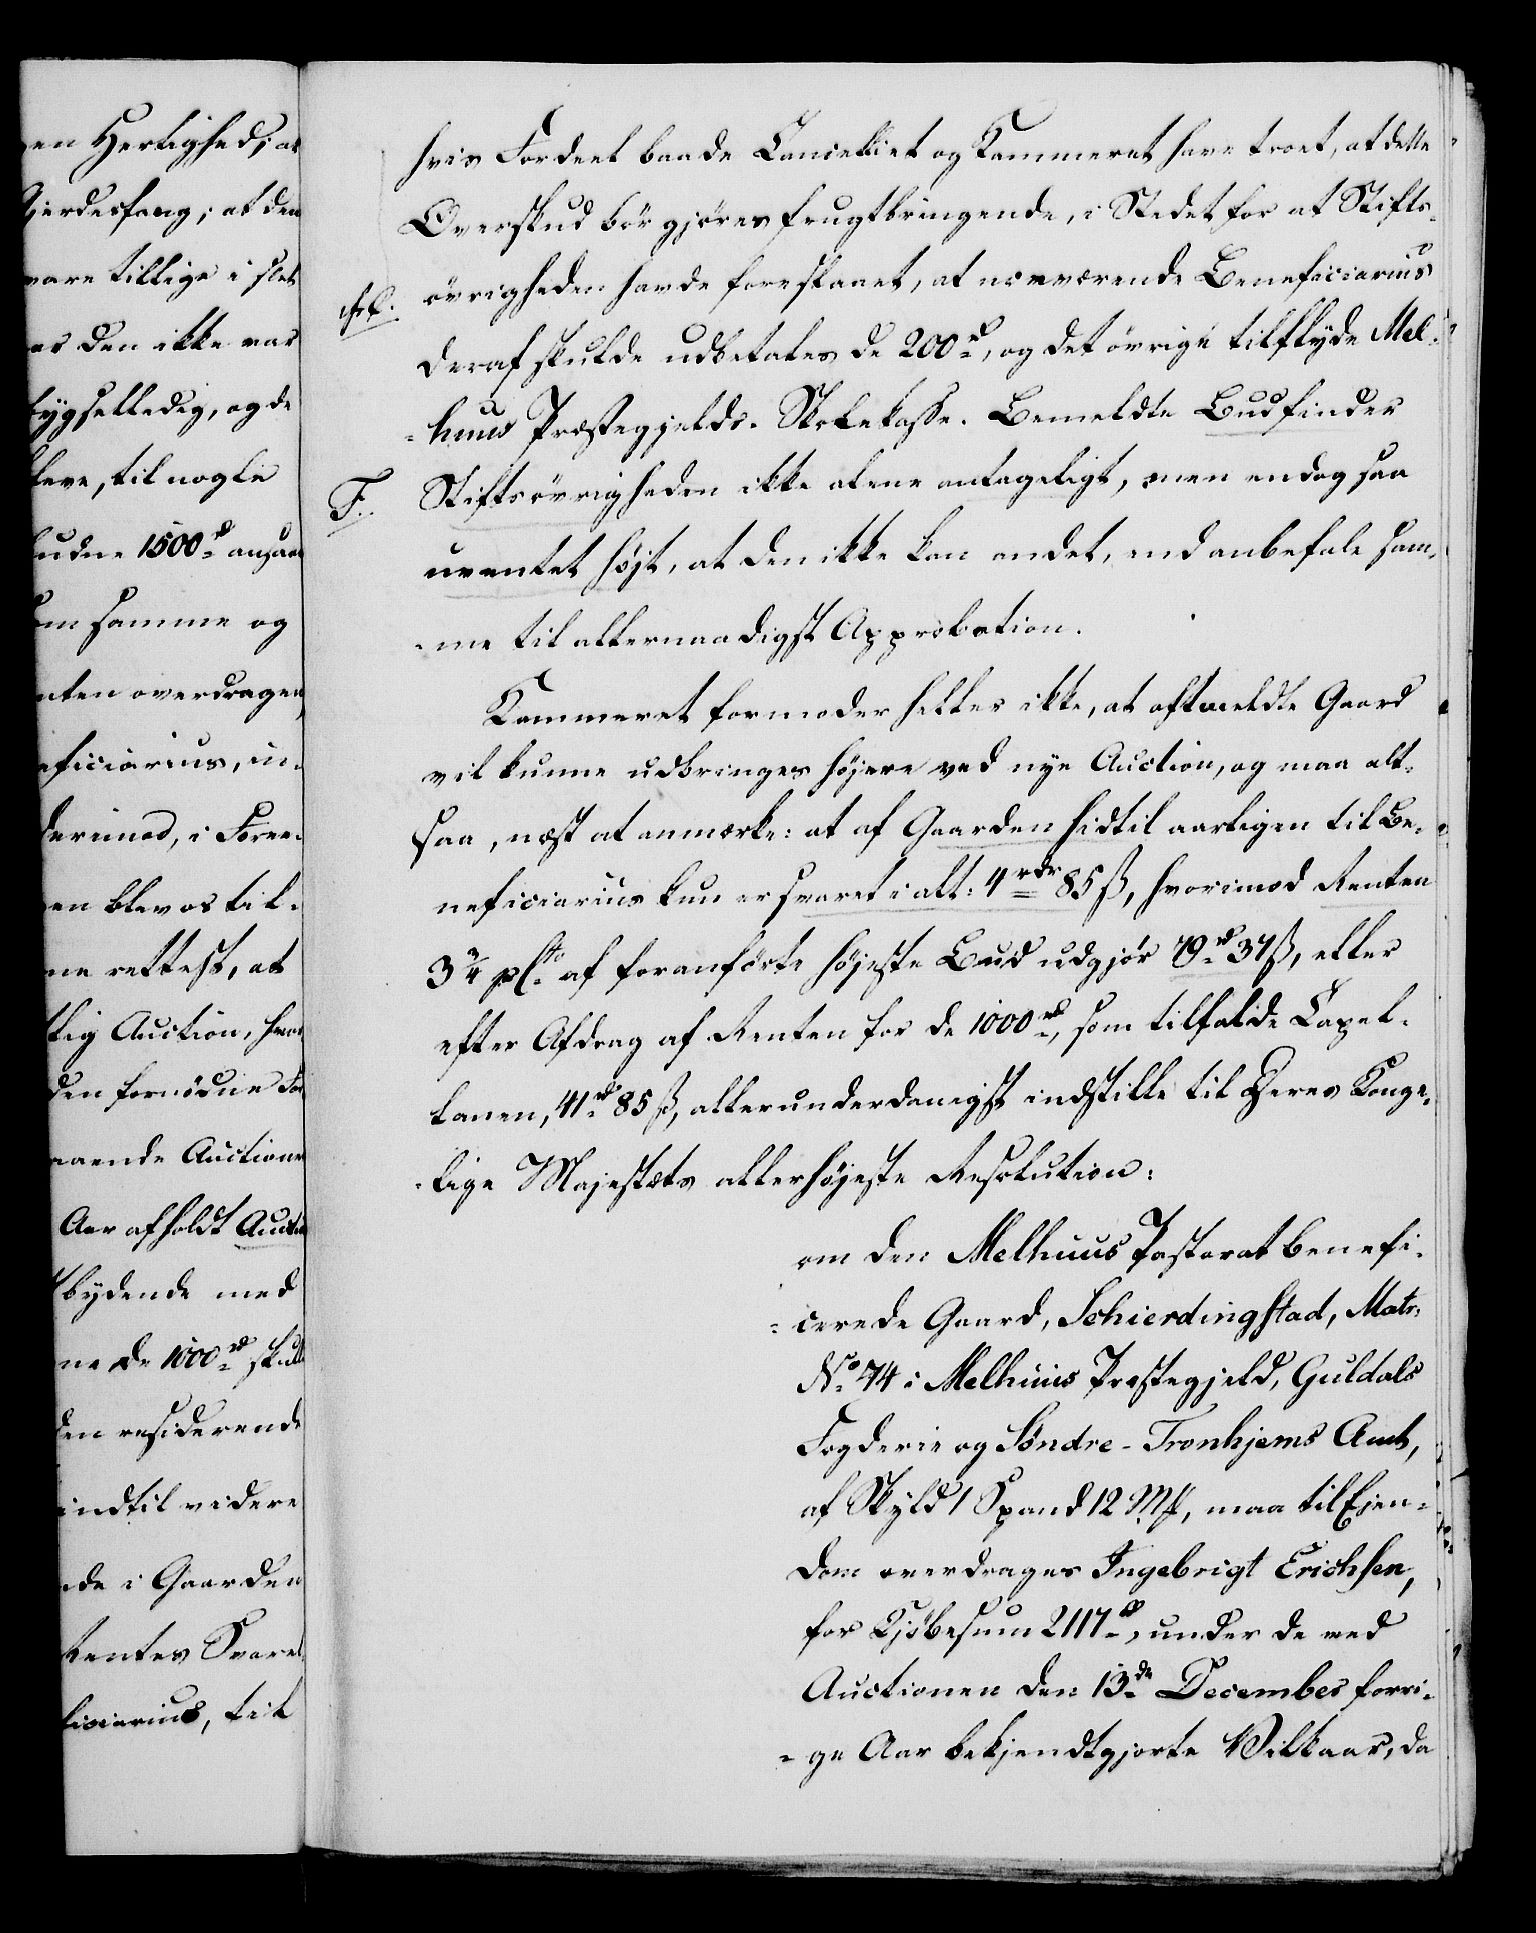 en Herlighed; at
Gierdesfang; at den
vare tillige i slet
as den ikke var
bygselledig, og de
leve, til nogle
budne 1500rd ansaae
om samme og
nten overdragen
eficiarius, in-
derimod, i Foree-
en blev os til-
ne rettest, at
tlig Auction, hvor
den fornödne For
aaende Auctione
Aar afholdt Auctio
tbydende med
ne de 1000rd skulle
den residerende
indtil videre
de i Gaarden
Rentes Svarel
ficiarius, til
hvis Fordeel baade Cancelliet og Kammeret have troet, at dette
Overskud bör gjöres frugtbringende, i Stedet for at Stifts-
övrigheden havde foreslaaet, at nærværende Beneficiarius
deraf skulde udbetales de 200rd, og det övrige tilflyde Mel-
-huus Præstegjelds Skolekasse. Bemeldte Bud finder
F. Stiftsövrigheden ikke alene antageligt, men endog saa
uventet höjt, at den ikke kan andet, end anbefale sam-
-me til allernaadigst Approbation.
Kammeret formoder heller ikke, at oftmeldte Gaard
vil kunne udbringes höjere ved nye Auction, og maa alt-
saa, næst at anmærke: at af Gaarden hidtil aarligen til Be-
neficiarius kun er svaret i alt: 4rdr 85ß, hvorimod Renten
3¾ pCto af foranförte höjeste Bud udgjör 79rd 37ß, eller
efter Afdrag af Renten for de 1000rd, som tilfalde Capel-
lanen, 41rd 85ß, allerunderdanigst indstille til Deres Konge-
-lige Majestæts allerhöjeste Resolution:
om den Melhuus Pastorat benefi-
-cerede Gaard, Schierdingstad, Matr.
No 74 i Melhuus Præstegjeld, Guldals
Fogderie og Söndre-Tronhjems Amt,
af Skyld 1 Spand 12 Ml, maa til Ejen-
dom overdrages Ingebrigt Erichsen,
for Kjöbesum 2117rd, under de ved
Auctionen den 13de December forri-
-ge Aar bekjendtgjorte Vilkaar, da